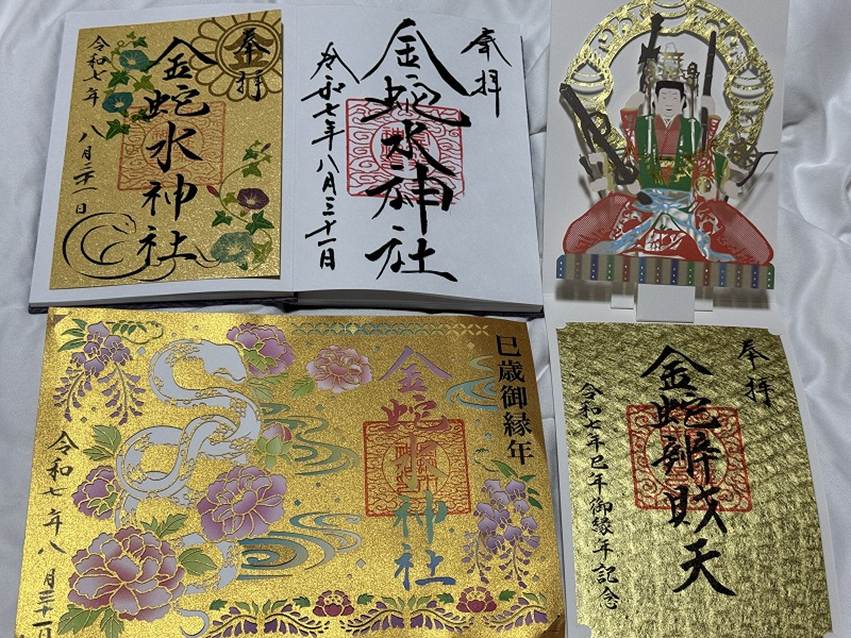 奉拝
金
金蛇水神社
令和七年
八月三十一日
奉拝
金蛇水神社
令和七年八月三十一日
巳歳御縁年
金蛇水神社
令和七年八月三十一日
奉拝
金蛇辨財天
令和七年巳年御縁年記念